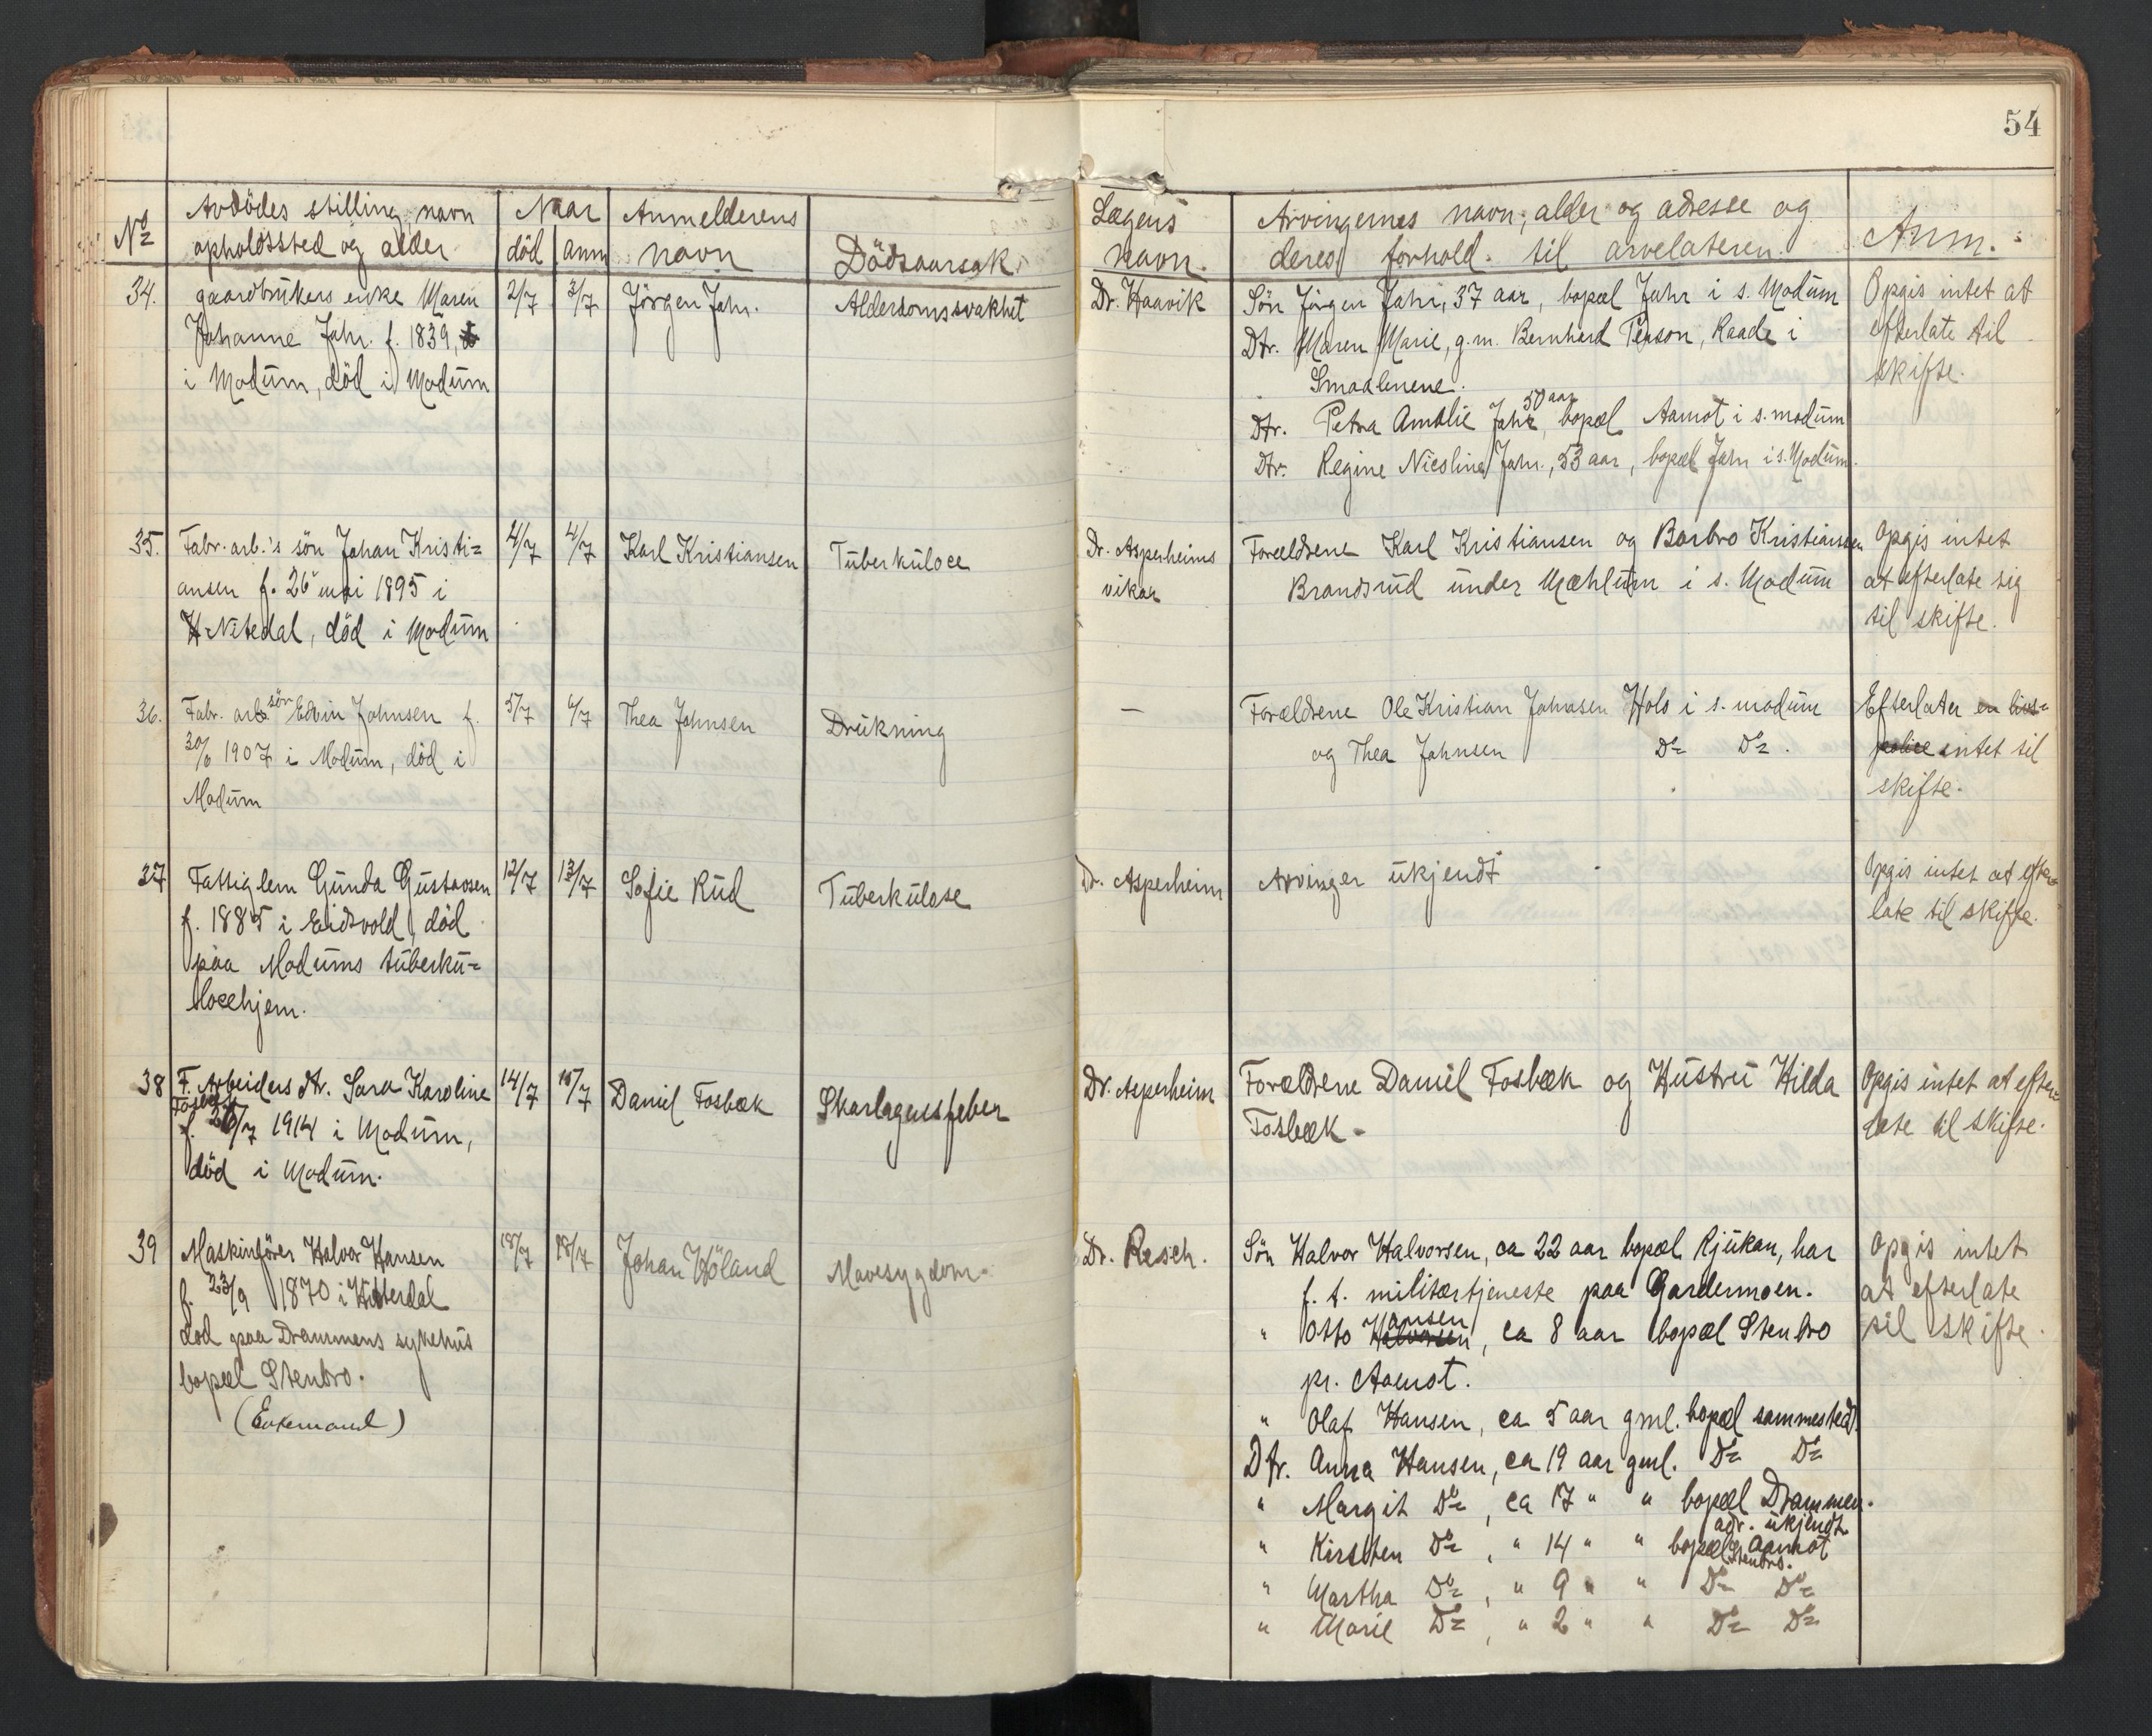 54
No
Avdödes stilling, navn
opholdssted og alder
Naar
död
anm
Anmelderens
navn
Dödsaarsak
Lægens
navn.
Arvingernes navn, alder og adresse og
deres forhold til arvelateren.
Anm.
34.
gaardbrukers enke Maren
Johanne Jahr. f. 1839,
i Modum, död i Modum
2/7
3/7
Jörgen Jahr.
Alderdomssvakhet
Dr. Haavik
Sön Jörgen Jahr, 37 aar, bopæl Jahr i s. Modum
Dtr. Maren Marie, g.m. Bernhard Person, Raade i
Smaalenene.
50 aar
Dtr. Petra Amalie Jahr, bopæl Aamot i s. modum
Dtr. Regine Nicoline Jahr, 53 aar, bopæl Jahr i s. Modum.
Opgis intet at
efterlate til
skifte.
35.
Fabr. arb.'s sön Johan Kristi=
ansen f. 26 mai 1895 i
Nitedal, död i Modum
4/7
4/7
Karl Kristiansen
Tuberkuloce
Dr. Asperheims
vikar
Forældrene Karl Kristiansen og Barbro Kristiansen
Brandsrud under Mæhlum i s. Modum
Opgis intet
at efterlate sig
til skifte.
36.
Fabr. arb. sön Edvin Johnsen f.
30/6 1907 i Modum, död i
Modum
5/7
6/7
Thea Johnsen
Drukning
—
Forældrene Ole Kristian Johnsen Hols i s. modum
og Thea Johnsen Do Do.
Efterlater en livs=
police intet til
skifte.
37
Fattiglem Gunda Gustavsen
f. 1885 i Eidsvold, död
paa Modums tuberku=
locehjem.
12/7
13/7
Sofie Rud
Tuberkulose
Dr. Asperheim
Arvinger ukjendt
Opgis intet at efter=
late til skifte.
38
F. Arbeiders dtr. Sara Karoline
Fosbæk
f. 26/7 1914 i Modum,
död i Modum.
14/7
16/7
Daniel Fosbæk
Skarlagensfeber
Dr. Asperheim
Forældrene Daniel Fosbæk og Hustru Hilda
Fosbæk -
Opgis intet at efter=
late til skifte.
39
Maskinförer Halvor Hansen
f. 23/9 1870 i Hitterdal
död paa Drammens sykehus
bopæl Stenbro.
(Enkemand)
18/7
18/7
Johan Höland
Mavesygdom.
Dr. Resch.
Sön Halvor Halvorsen, ca 22 aar bopæl Rjukan, har
f. t. militærtjeneste paa Gardermoen.
ansen
" Otto Halvorsen, ca 8 aar bopæl Stenbro
pr. Aamot.
" Olaf Hansen, ca 5 aar gml. bopæl sammested.
Dtr. Anna Hansen, ca 19 aar gml. Do Do
" Margit Do, ca 17 " " bopæl Drammen.
adr. ukjendt
" Kirsten Do, " 14 " " bopæl Aamot
Stenbro.
" Martha Do, " 9 " " Do Do
" Marie Do, " 2 " " Do Do
Opgis intet
at efterlate
til skifte.